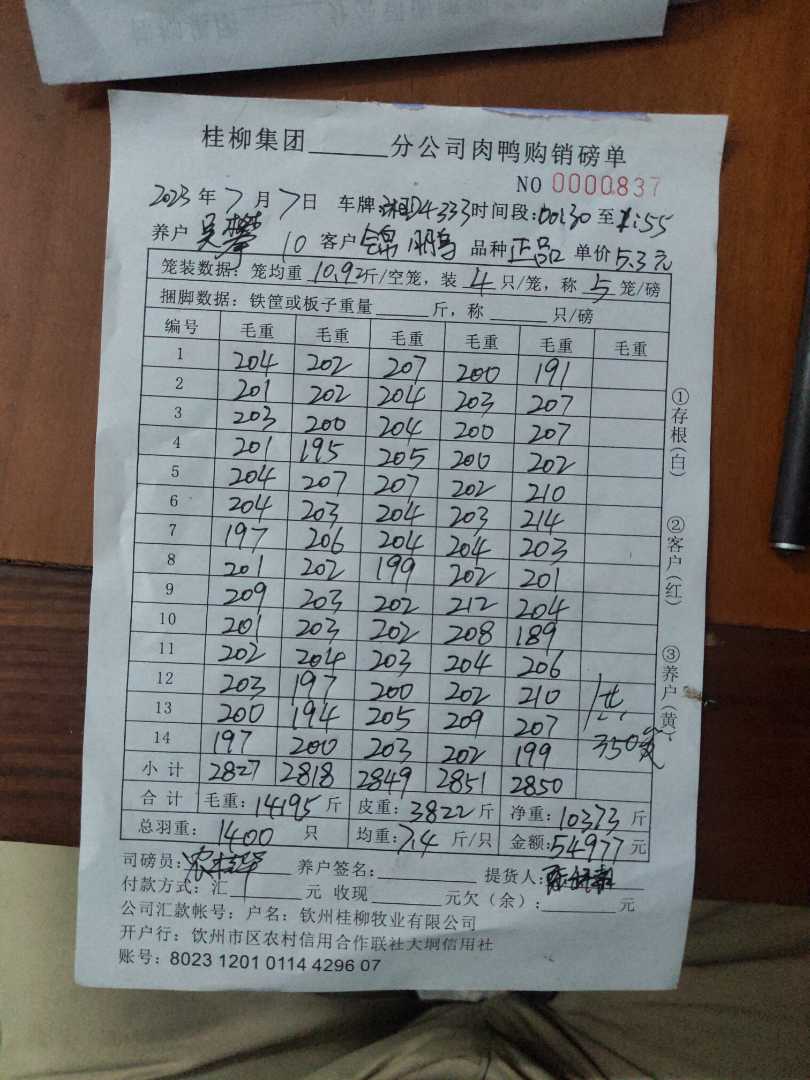 桂柳集团______分公司肉鸭购销磅单
NO 0000837
2023年7月7日 车牌:湘D24333 时间段:00:30至1:55
养户 吴攀 10 客户 锦鹏 品种 正品 单价 5.3元
笼装数据: 笼均重 10.92斤/空笼, 装 4 只/笼, 称 5 笼/磅
捆脚数据: 铁筐或板子重量______斤, 称______只/磅
编号 毛重 毛重 毛重 毛重 毛重 毛重
1 204 202 207 200 191
2 201 202 204 203 207
3 203 200 204 200 207
4 201 195 205 200 202
5 204 207 207 202 210
6 204 203 204 203 214
7 197 206 204 204 203
8 201 202 199 202 201
9 209 203 202 212 204
10 201 203 202 208 189
11 202 204 203 204 206
12 203 197 200 202 210 共
13 200 194 205 209 207
14 197 200 203 202 199 350笼
小计 2827 2818 2849 2851 2850
合计 毛重:14195斤 皮重:3822斤 净重:10373斤
总羽重: 1400 只 均重:7.4 斤/只 金额:54977元
司磅员: 养户签名:______ 提货人:
付款方式:汇______元 收现______元欠(余):______元
公司汇款帐号: 户名: 钦州桂柳牧业有限公司
开户行: 钦州市区农村信用合作联社大垌信用社
账号: 8023 1201 0114 4296 07
①存根(白)
②客户(红)
③养户(黄)